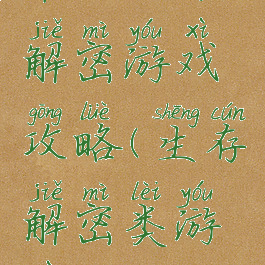 jiě mì yóu xì
解密游戏
gōng lüè shēng cún
攻略(生存
jiě mì lèi yóu
解密类游